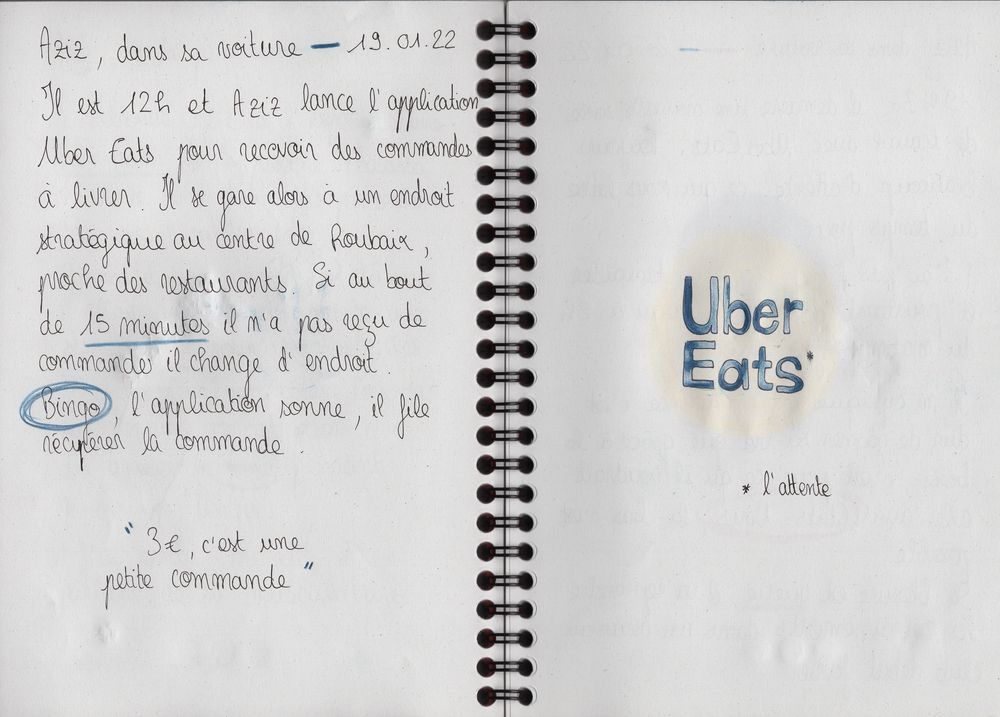 Aziz, dans sa voiture — 19.01.22
Il est 12h et Aziz lance l'application
Uber Eats pour recevoir des commandes
à livrer. Il se gare alors à un endroit
stratégique au centre de Roubaix,
proche des restaurants. Si au bout
de 15 minutes il n'a pas reçu de
commande il change d'endroit.
Bingo, l'application sonne, il file
récupérer la commande.
" 3€, c'est une
petite commande "
Uber
Eats*
* l'attente